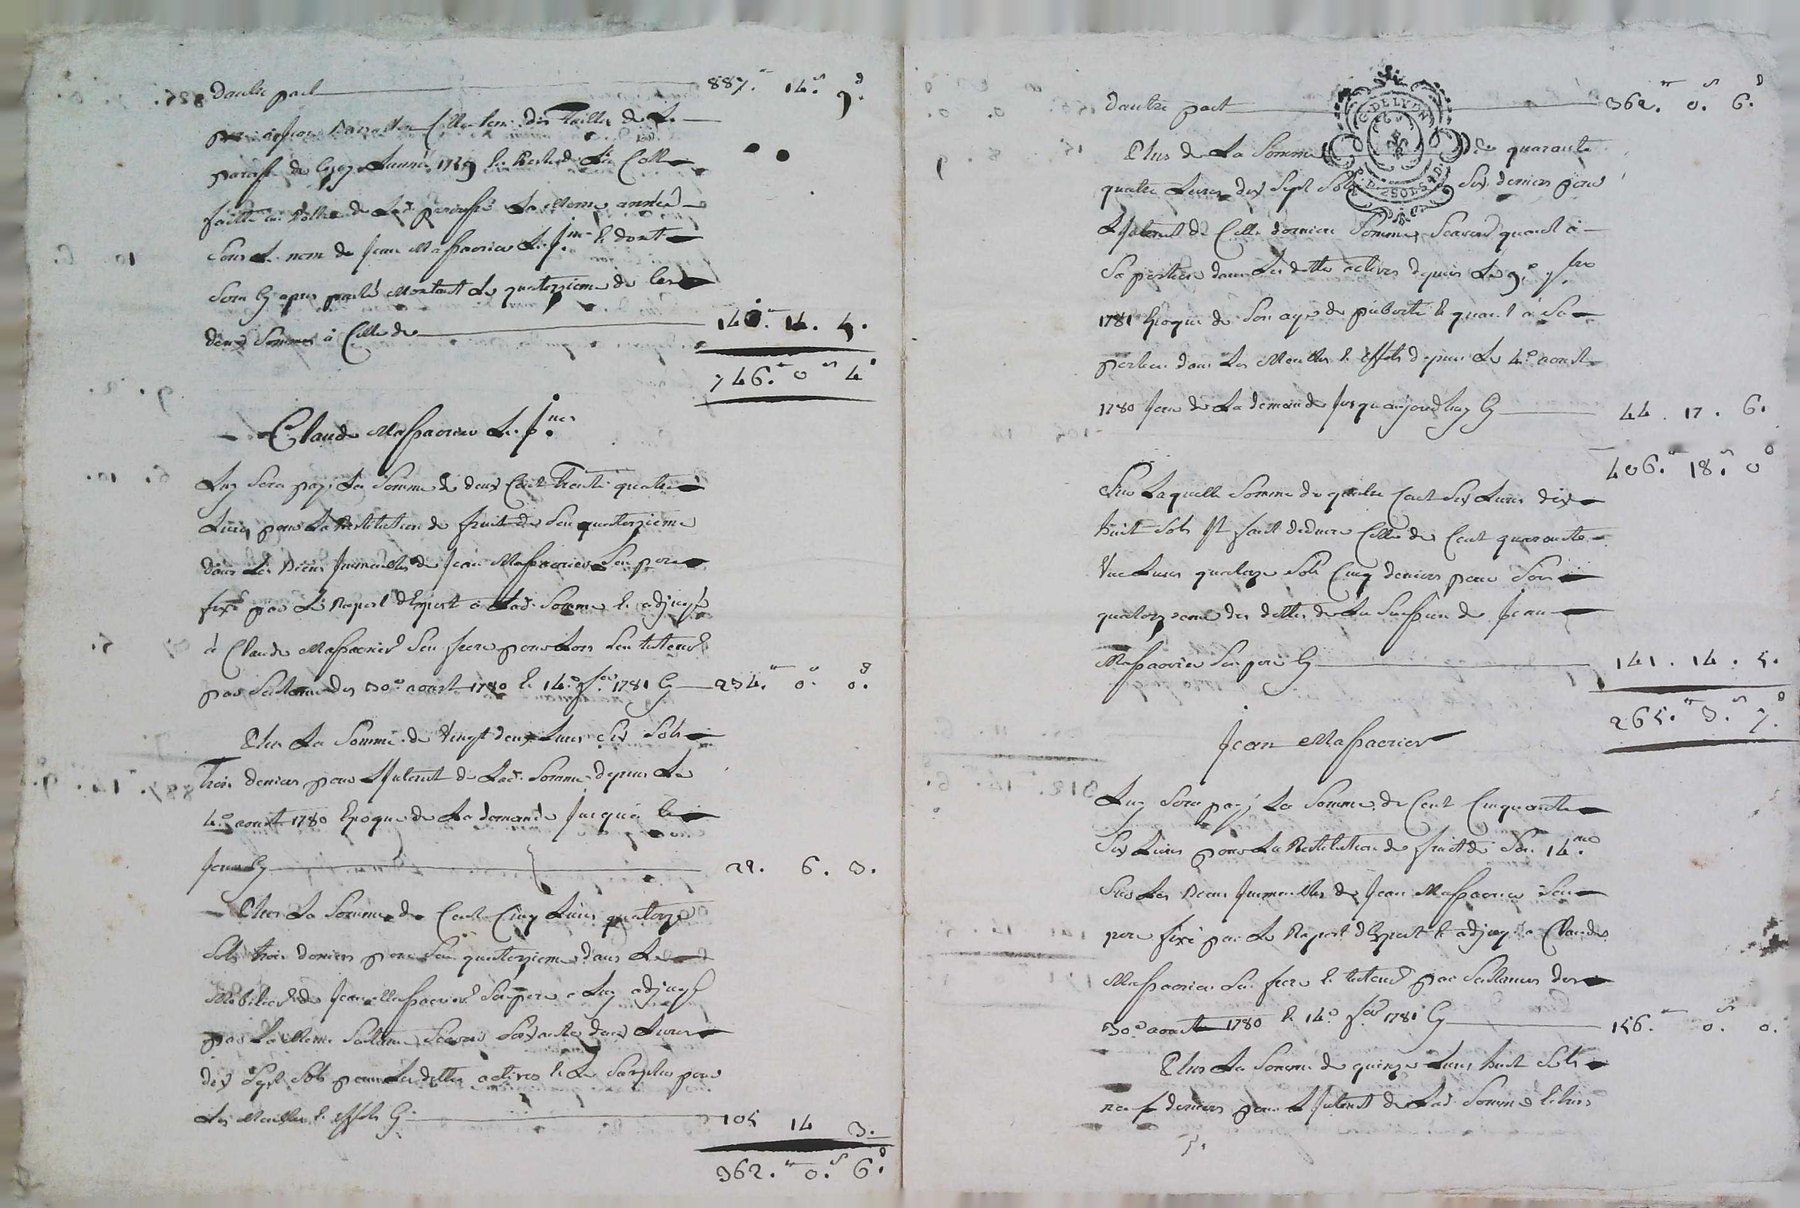 Dautre part 887.tt 14.s 9.d
par Collecteur des Tailles de La
paroisse de l'année 1789
faitte au Rolle de Lad. paroisse La meme année
sous Le nom de Jean Massacrier Le J.ne & dont
sera cy apres parlé montant Le quatorzieme de Ces
deux Sommes à Celle de 141. 14. 5.
746.tt 0s 4d
Claude Massacrier Le J.ne
Luy Sera payé La Somme de deux Cent Trente quatre
Livres pour La Restitution de fruits de Son quatorzieme
dans Les Biens Immeubles de Jean Massacrier Son pere
fixé par Le Raport d'Expert à Lad. Somme & adjugé
à Claude Massacrier Son frere pour Lors Son tuteur
par Sentence des 30.e aoust 1780 & 14.e 1781 Cy 234.tt 0.s 0.d
Plus La Somme de Vingt deux Livres Six Sols
Trois deniers pour L'Interest de Lad. Somme depuis Le
4.e aoust 1780 Epoque de La demande Jusqu'à ce
Jour Cy 22. 6. 3.
Plus La Somme de Cent Cinq Livres quatorze
Sols trois deniers pour Son quatorzieme dans Le
Mobilier de Jean Massacrier Son pere à Luy adjugé
par La Meme Sentence Scavoir Soixante deux Livres
dix Sept Sols pour Les dettes actives & Le Surplus pour
Les Meubles & effets Cy 105 14 3.
362.tt 0.s 6.d
Dautre part 362.tt 0.s 6.d
G. DE LYON
2 SOLS 4 D.
Plus de La Somme de quarante
quatre Livres dix Sept Sols Six deniers pour
L'Interest de Cette derniere Somme Scavoir quant à
Sa portion dans Les dettes actives depuis Le 9.e
1781 Epoque de Son age de puberté & quant à Sa
portion dans Les Meubles & effets depuis Le 4.e aoust
1780 Jour de La demande Jusqu'aujourdhuy Cy 44. 17. 6.
406.tt 18.s 0d
Sur Laquelle Somme de quatre Cent Six Livres dix
huit Sols Il faut deduire Celle de Cent quarante
Une Livres quatorze Sols Cinq deniers pour Son
quatorzieme des dettes de La Succession de Jean
Massacrier Son pere Cy 141. 14. 5.
265.tt 3.s 7.d
Jean Massacrier
Luy Sera payé La Somme de Cent Cinquante
Six Livres pour La Restitution de fruits de Son 14.me
Sur Les Biens Immeubles de Jean Massacrier Son
pere fixé par Le Raport d'Expert & adjugé à Claude
Massacrier Son frere & tuteur par Sentences des
30.e aoust 1780 & 14.e 1781 Cy 156.tt 0.s 0.
Plus La Somme de quinze Livres huit Sols
neuf deniers pour L'Interest de Lad. Somme